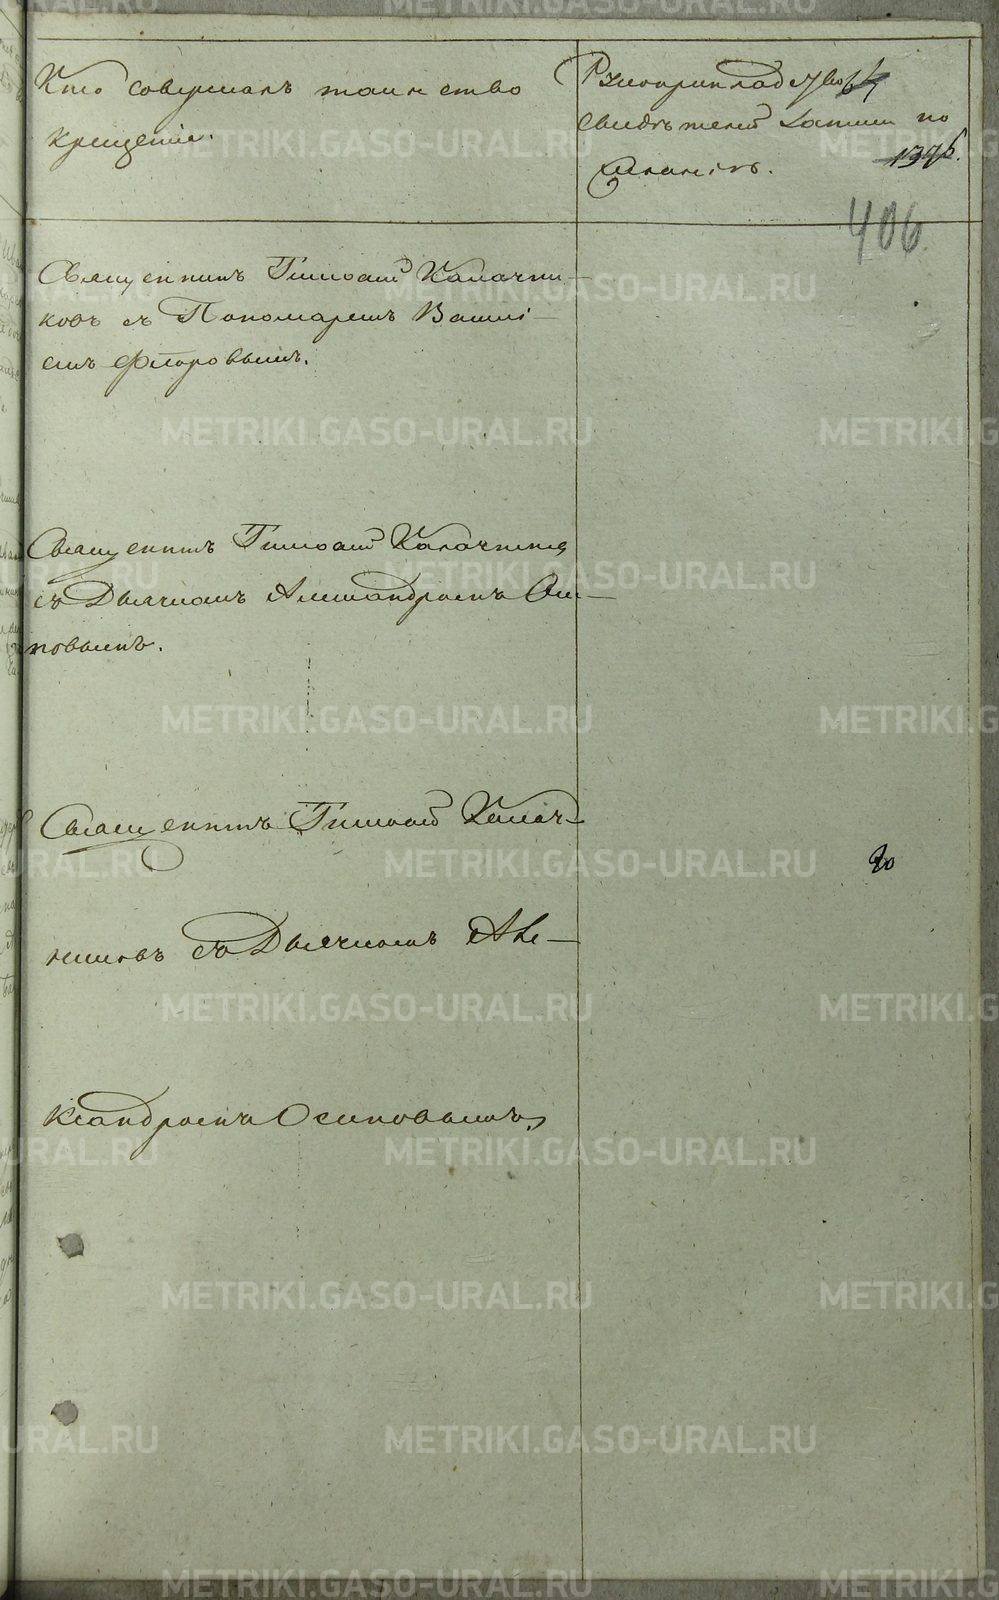 Кто совершалъ таинство
крещенiе.
Рукоприкладство
свидѣтелей записи по
желанiю.
1376.
406.
Священникъ Тимофей Калачни-
ковъ съ Пономаремъ Васил-
емъ Флоровымъ.
Священникъ Тимофей Калачников
съ Дьячкомъ Александромъ Оси-
повымъ.
Священникъ Тимофей Калач-
никовъ съ Дьячкомъ Але-
ксандромъ Осиповымъ
METRIKI.GASO-URAL.RU